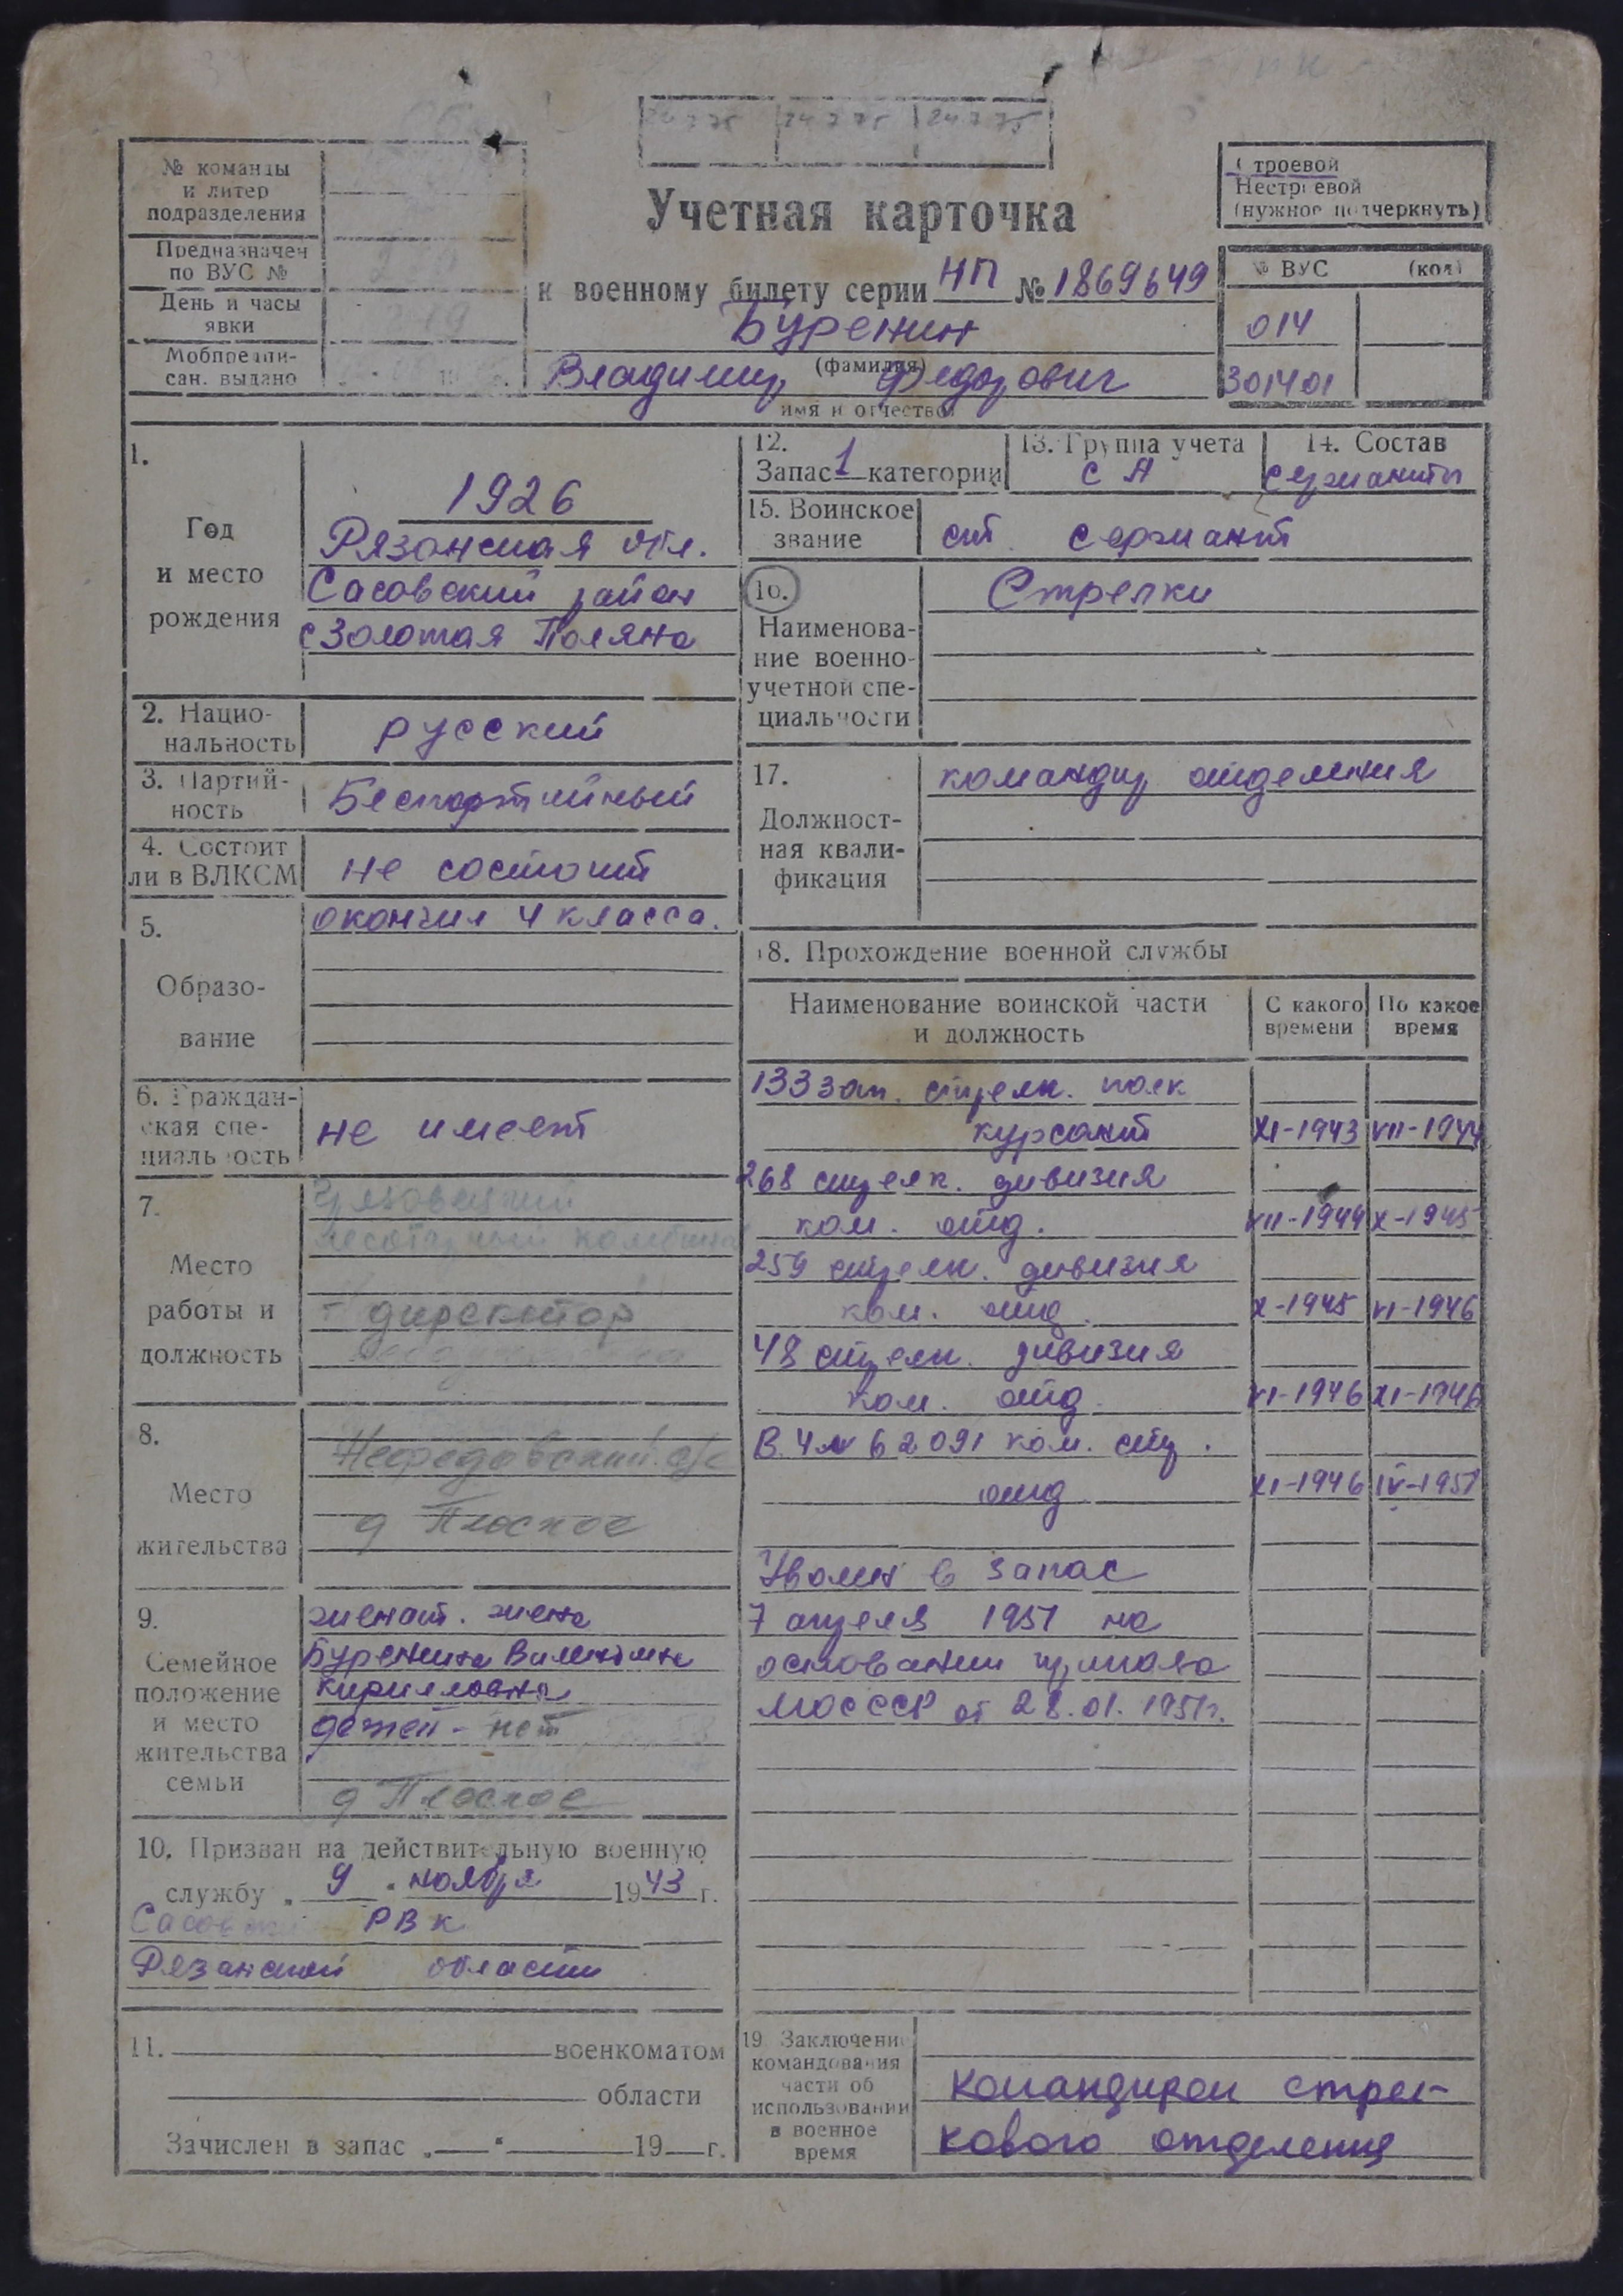 24 7 75 24 7 75 24 7 75
№ команды
и литер
подразделения
Предназначен
по ВУС №
День и часы
явки
Мобпредпи-
сан. выдано
Учетная карточка
к военному билету серии НП № 1869649
Буренин
(фамилия)
Владимир Федорович
имя и отчество
Строевой
Нестроевой
(нужное подчеркнуть)
№ ВУС (код)
014
301401
1.
Год
и место
рождения
1926
Рязанская обл.
Сасовский район
с Золотая Поляна
2. Нацио-
нальность
русский
3. Партий-
ность
Беспартийный
4. Состоит
ли в ВЛКСМ
не состоит
5.
Образо-
вание
окончил 4 класса.
6. Граждан-
ская спе-
циальность
не имеет
7.
Место
работы и
должность
директор
8.
Место
жительства
Нефедовский с/с
д Плоское
9.
Семейное
положение
и место
жительства
семьи
женат. жена
Буренина Валентина
Кирилловна
детей - нет
д Плоское
10. Призван на действительную военную
службу „ 9 “ ноября 1943 г.
РВК
Рязанской области
11. военкоматом
области
Зачислен в запас „ “ 19 г.
12.
Запас 1 категории
13. Группа учета
СА
14. Состав
сержанты
15. Воинское
звание
ст сержант
16.
Наименова-
ние военно-
учетной спе-
циальности
Стрелки
17.
Должност-
ная квали-
фикация
командир отделения
18. Прохождение военной службы
Наименование воинской части
и должность
С какого
времени
По какое
время
133 зап. стрелк. полк
курсант XI-1943 VII-1944
268 стрелк. дивизия
ком. отд. VII-1944 X-1945
259 стрелк. дивизия
ком. отд. X-1945 VI-1946
48 стрелк. дивизия
ком. отд. VI-1946 XI-1946
В.Ч № 62091 ком. стр.
отд XI-1946 IV-1951
Уволен в запас
7 апреля 1951 на
основании приказа
МО СССР от 28.01.1951г.
19 Заключение
командования
части об
использовании
в военное
время
командиром стрел-
кового отделения